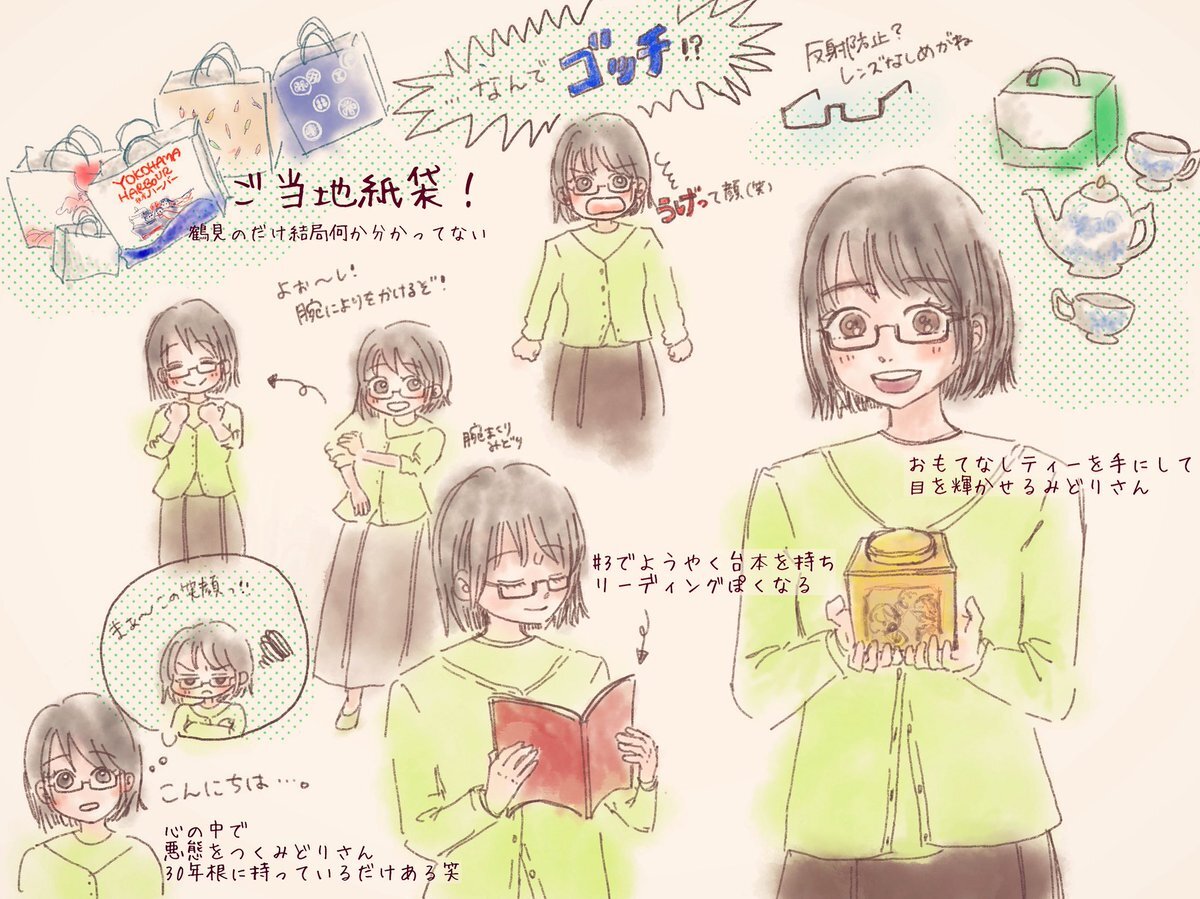 …なんで ゴッチ !?
反射防止?
レンズなしめがね
YOKOHAMA
HARBOUR
ハーバー
ご当地紙袋!
鶴見のだけ結局何か分かってない
うげって顔(笑)
よお〜し!
腕によりをかけるぞ!
腕まくり
みどり
おもてなしティーを手にして
目を輝かせるみどりさん
#3でようやく台本を持ち
リーディングぽくなる
まぁ〜この笑顔っ!!
こんにちは…。
心の中で
悪態をつくみどりさん
30年根に持っているだけある笑